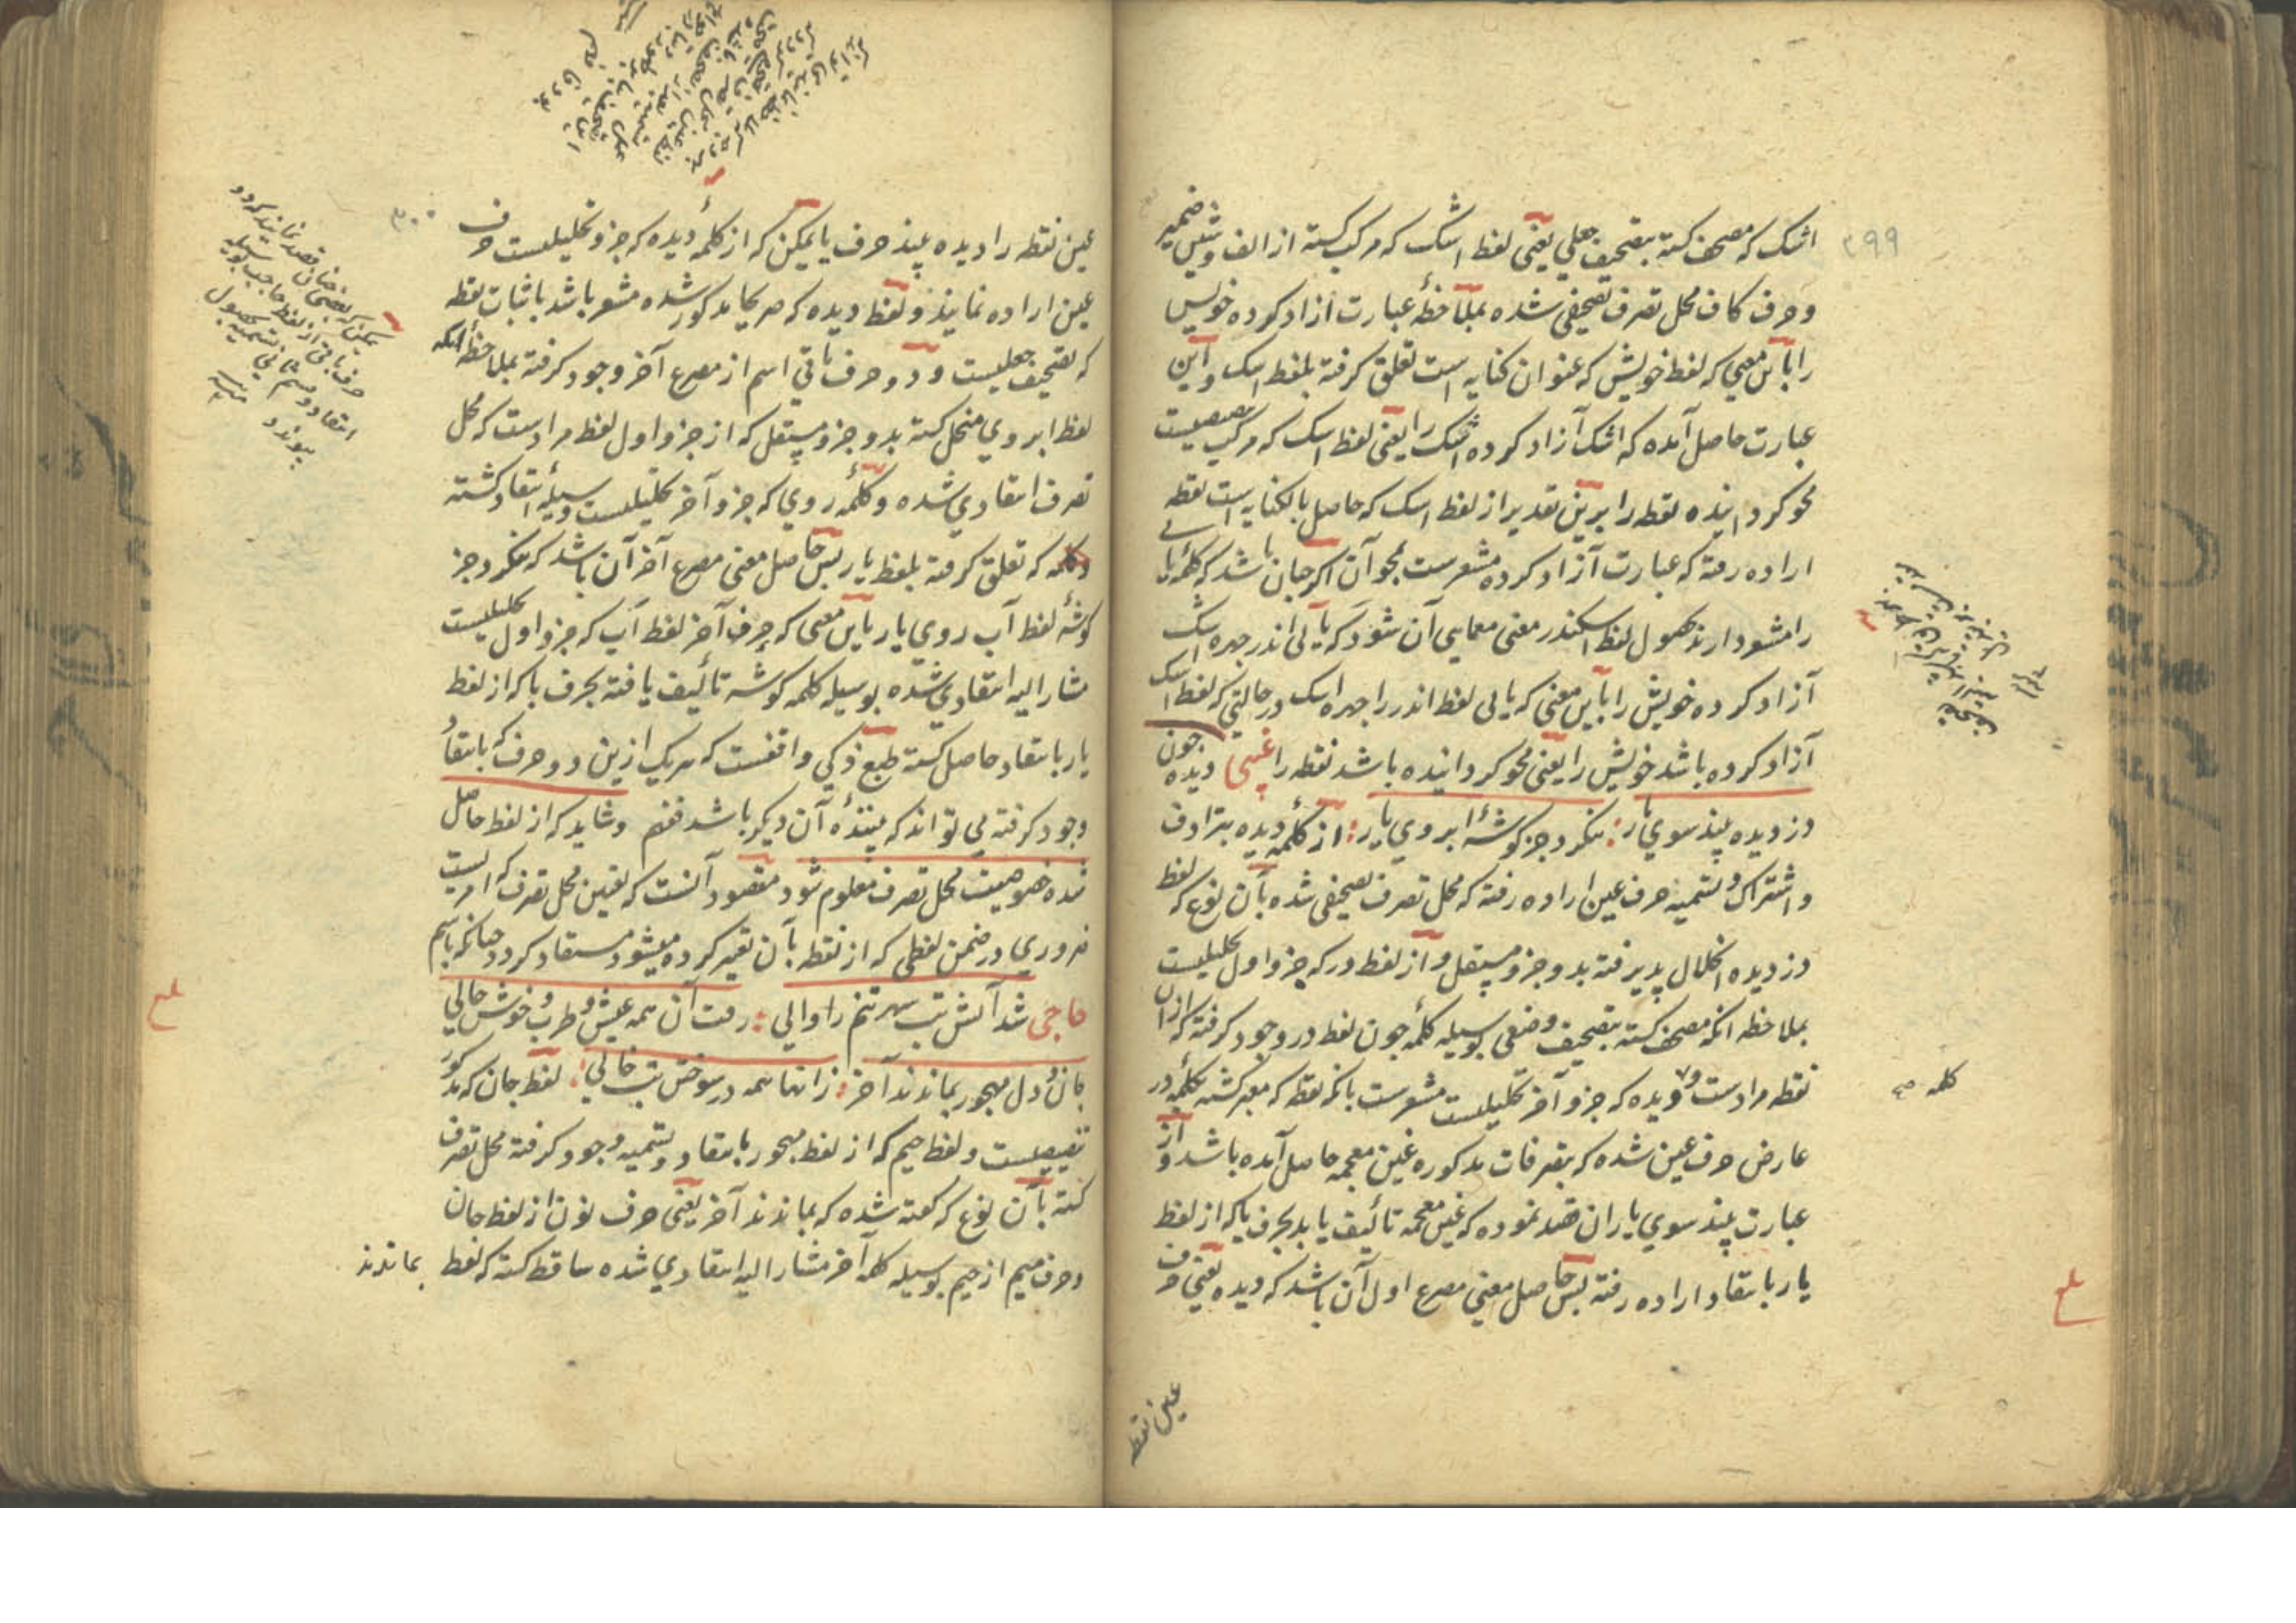 ۲۹۹
اشک که مصحف کشته بتصحیف جعلی یعنی لفظ اشک که مرکب کشته از الف و شین ضمیر
و حرف کاف محل تصرف تصحیفی شده بملاحظهٔ عبارت آزاد کرده خویش
را باین معنی که لفظ خویش که عنوان کنایه است تعلق کرفته بلفظ اشک و این
عبارت حاصل آمده که اشک آزاد کرده اشک را یعنی لفظ اسک که مرکب
محو کرداینده نقطه را برین تقدیر از لفظ اسک که حاصل بالکنایه است نقطه
اراده رفته که عبارت آزاد کرده مشعرست بمحو آن اکر جان باشد که کلمهٔ
را مشود دارند بحصول لفظ اسکندر معنی معمایی آن شود که یا لی اندر چهره اشک
آزاد کرده خویش را باین معنی که یا لی لفظ اندر را چهره اسک در حالتی که لفظ اسک
آزاد کرده باشد خویش را یعنی محو کرداینده باشد نقطه را غیبی دیده چون
دزدیده بیند سوی یار : ننکرد جز کوشهٔ ابروی یار : از کلمهٔ دیده بترادف
و اشتراک و تسمیه حرف عین اراده رفته که محل تصرف تصحیفی شده بآن نوع که لفظ
دزدیده انحلال پذیرفته بدو جزو مستقل و از لفظ در که جزو اول تحلیلیست
بملاحظه انکه مصحف کشته بتصحیف وضعی بوسیله کلمهٔ چون لفظ در وجود کرفته که ازان
نقطه مرادست و دیده که جزو آخر تحلیلیست مشعرست بانکه نقطه که معبر کشته بکلمهٔ در
عارض حرف عین شده که بتصرفات مذکوره غین معجمه حاصل آمده باشد و از
عبارت بیند سوی یار ان قصد نموده که غین معجمه تألیف یابد بحرف یا که از لفظ
یار بانتقاد اراده رفته پس حاصل معنی مصرع اول آن باشد که دیده یعنی حرف
کلمه صح
عین نقطه
۳۰۰
عین نقطه را دیده بیند حرف یا یمکن که از کلمهٔ دیده که جزو تحلیلیست حرف
عین اراده نمایند و لفظ دیده که صریحا مذکور شده مشعر باشد باثبات نقطه
که تصحیف جعلیست و دو حرف باقی اسم از مصرع آخر وجود کرفته بملاحظهٔ انکه
لفظ ابروی منحل کشته بدو جزو مستقل که از جزو اول لفظ مرادست که محل
تصرف انتقادی شده و کلمهٔ روی که جزو آخر تحلیلیست وسیلهٔ انتقاد کشته
که تعلق کرفته بلفظ یار پس حاصل معنی مصرع آخر آن باشد که ننکرد جز
کوشهٔ لفظ آب روی یار باین معنی که حرف آخر لفظ آب که جزو اول تحلیلیست
مشار الیه انتقادی شده بوسیله کلمه کوشه تألیف یافته بحرف یا که از لفظ
یار بانتقاد حاصل کشته طبع ذکی واقفست که هریک ازین دو حرف که بانتقاد
وجود کرفته می تواند که بینندهٔ آن دیکر باشد فغم و شاید که از لفظ حاصل
شده خصوصیت محل تصرف معلوم شود مقصود آنست که تعین محل تصرف که امریست
ضروری در ضمن لفظی که از نقطه بآن تعبیر کرده میشود مستفاد کردد چنانکه باسم
حاجی شد آتش تب بهر تنم را والی : رفت آن همه عیش و طرب و خوش حالی
جان و دل مهجور بماندند آخر : زانها همه در سوختن تب خالی : لفظ جان که مذکور
تنصیصست و لفظ جیم که از لفظ مهجور بانتقاد و تسمیه وجود کرفته محل تصرف
کشته بآن نوع که کفته شده که بماندند آخر یعنی حرف نون از لفظ جان
و حرف میم از جیم بوسیله کلمه آخر مشار الیه انتقادی شده ساقط کشته که لفظ
بماندند